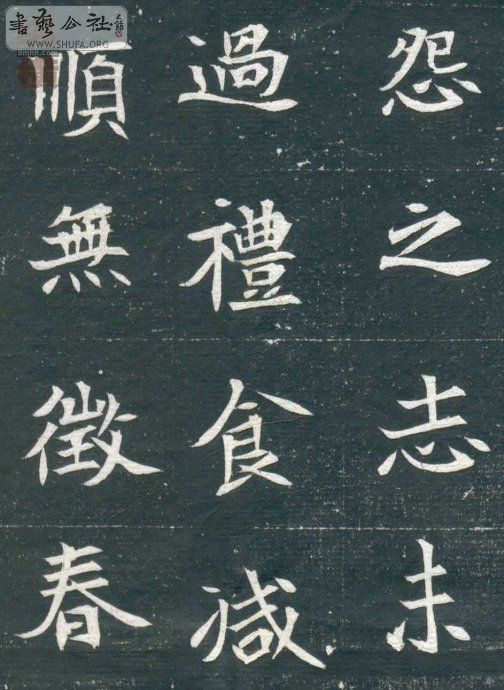 怨之志未
過禮食減
順無徵春
書藝公社
WWW.SHUFA.ORG